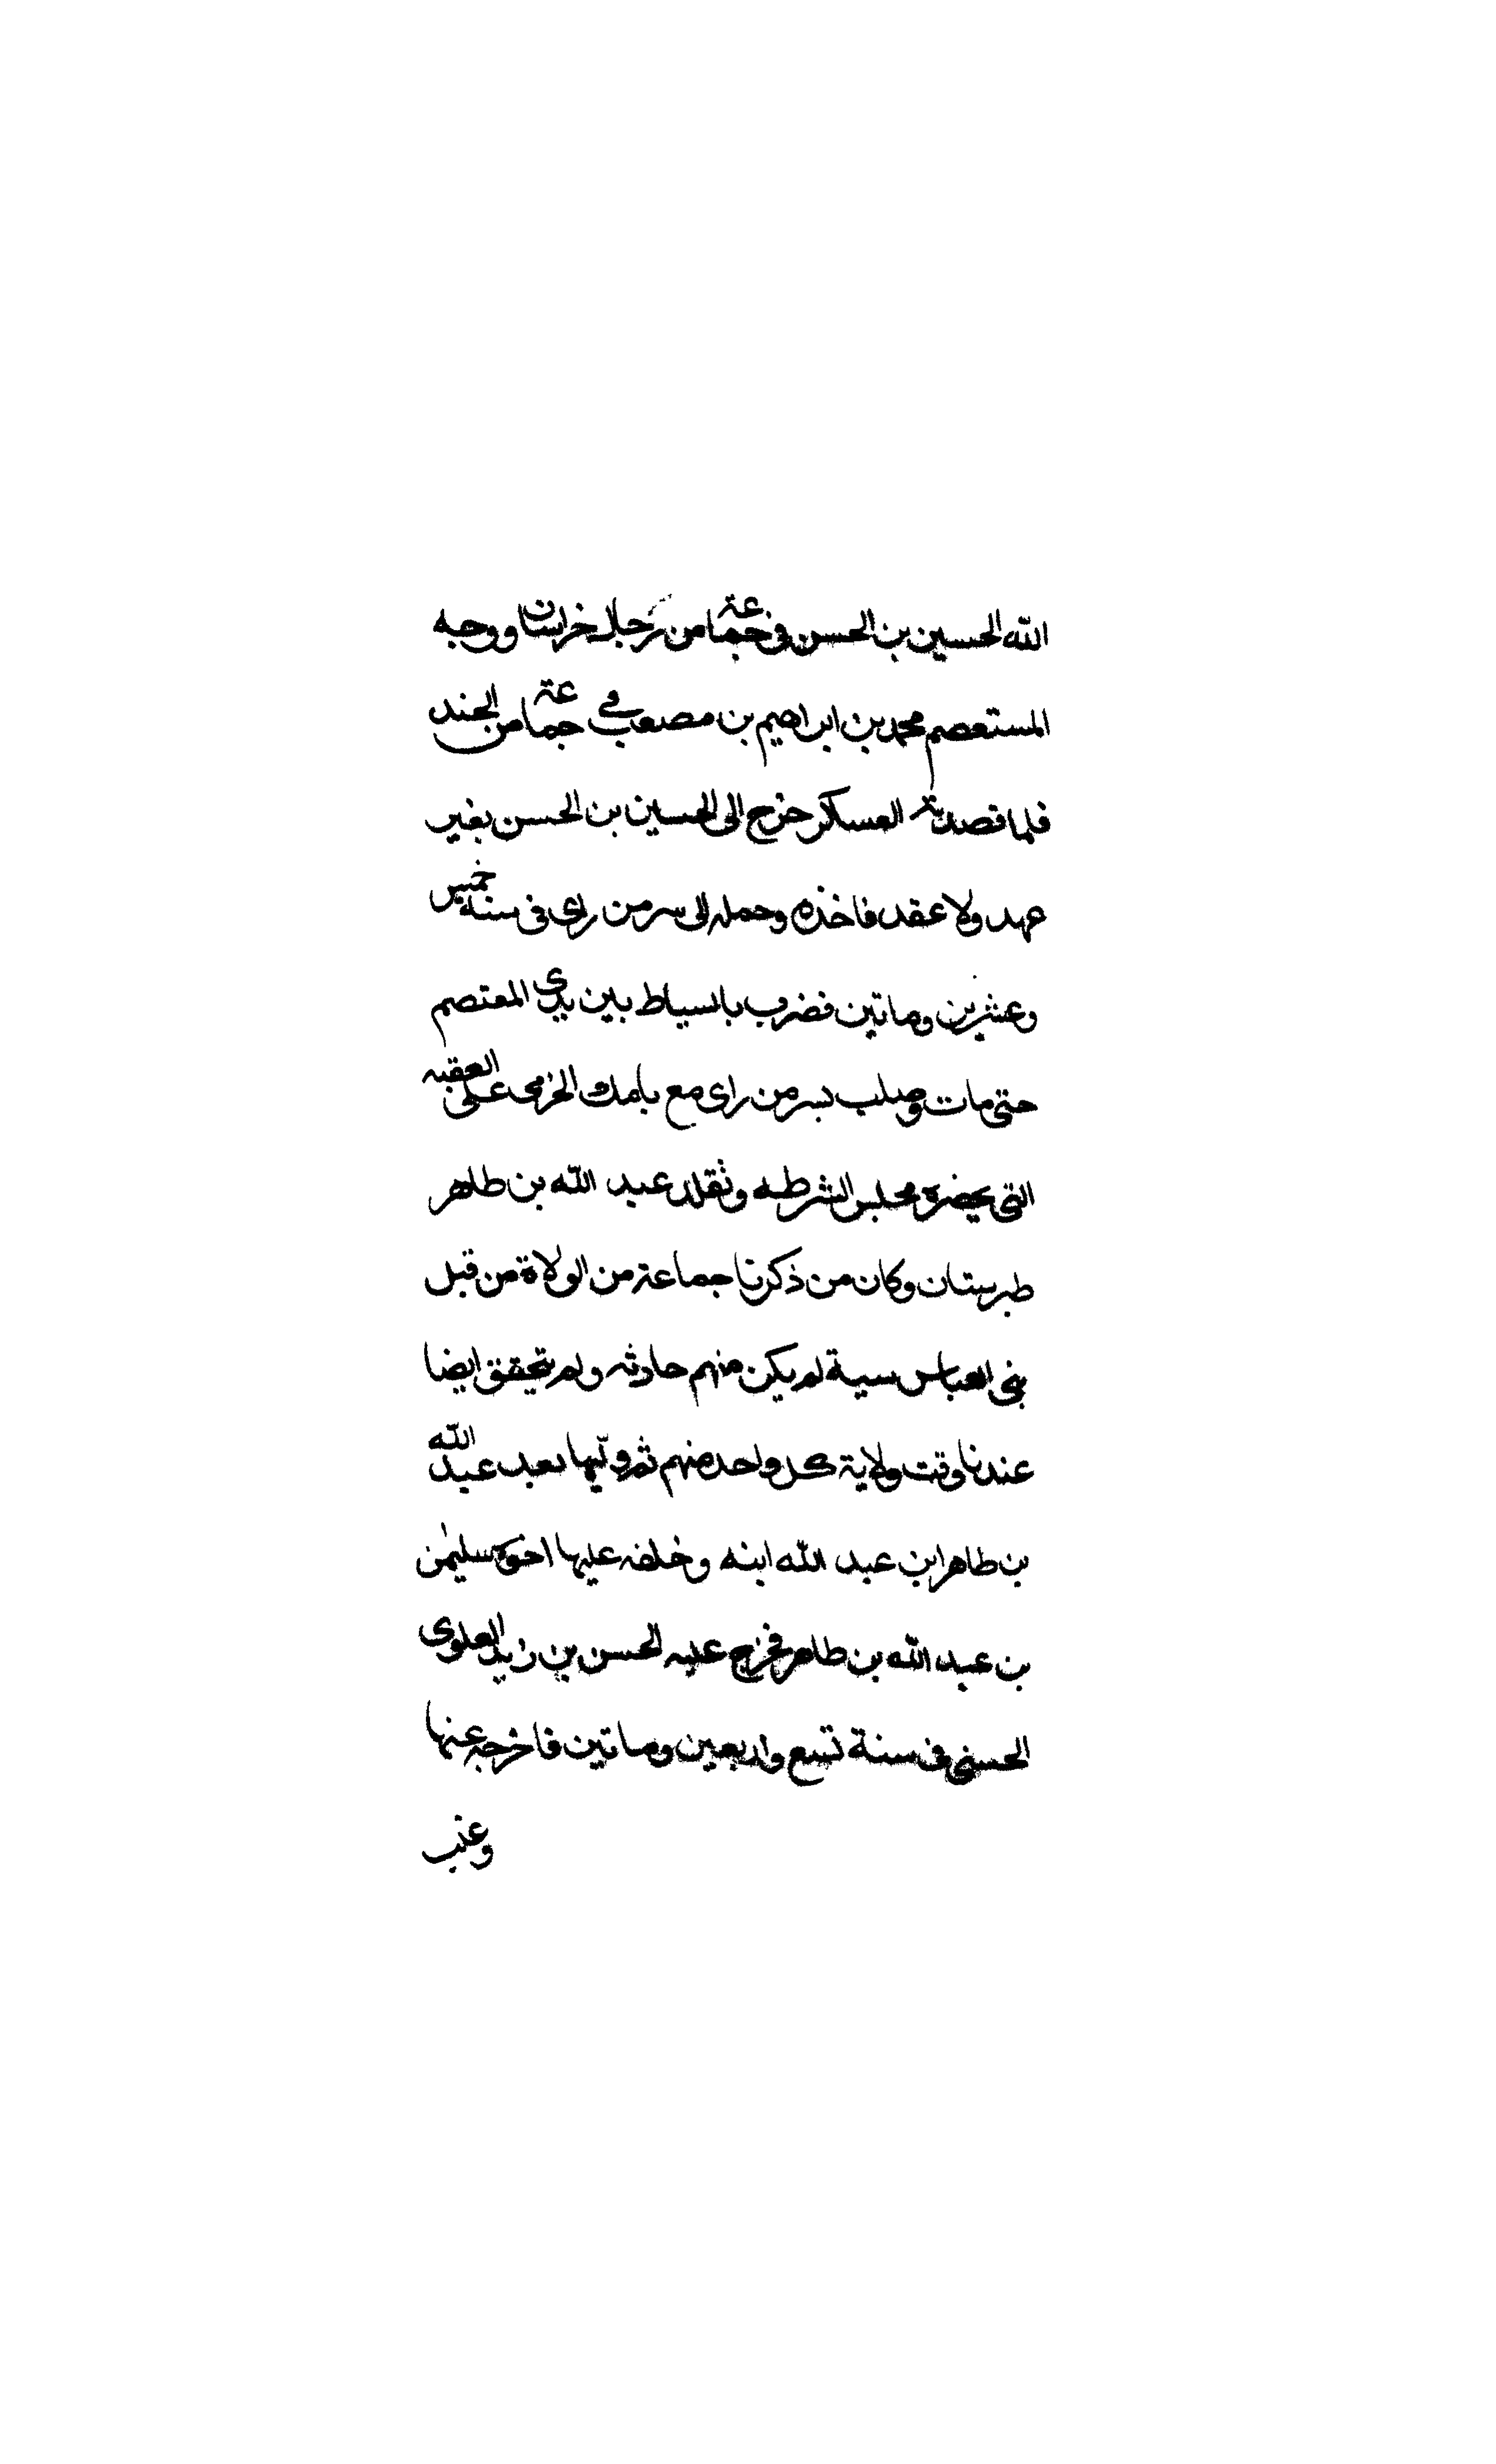 الله الحسين بن الحسن في جماعة من رجال خراسان ووجه
المستعصم محمد بن ابراهيم بن مصعب في جماعة من الجند
فلما قصدته العسكر خرج الى الحسين بن الحسن بغير
عهد ولا عقد فاخذه وحمله الى سر من راى في سنة خمس
وعشرين وماتين فضرب بالسياط بين يدي المعتصم
حتى مات وصلب بسر من راى مع بابك الخرمى على العقبه
التي بحضرة مجلس الشرطه وتقلد عبد الله بن طاهر
طبرستان وكان من ذكرنا جماعة من الولاة من قبل
بنى العباس سية لم يكن منهم حادثه ولم يتحقق ايضا
عندنا وقت ولاية كل واحد منهم ثم وليها بعد عبد الله
بن طاهر ابن عبد الله ابنه وخلفه عليها اخوه سليمن
بن عبد الله بن طاهر فخرج عليه الحسن بن زيد العلوى
الحسنى في سنة تسع واربعين وماتين فاخرجه عنها